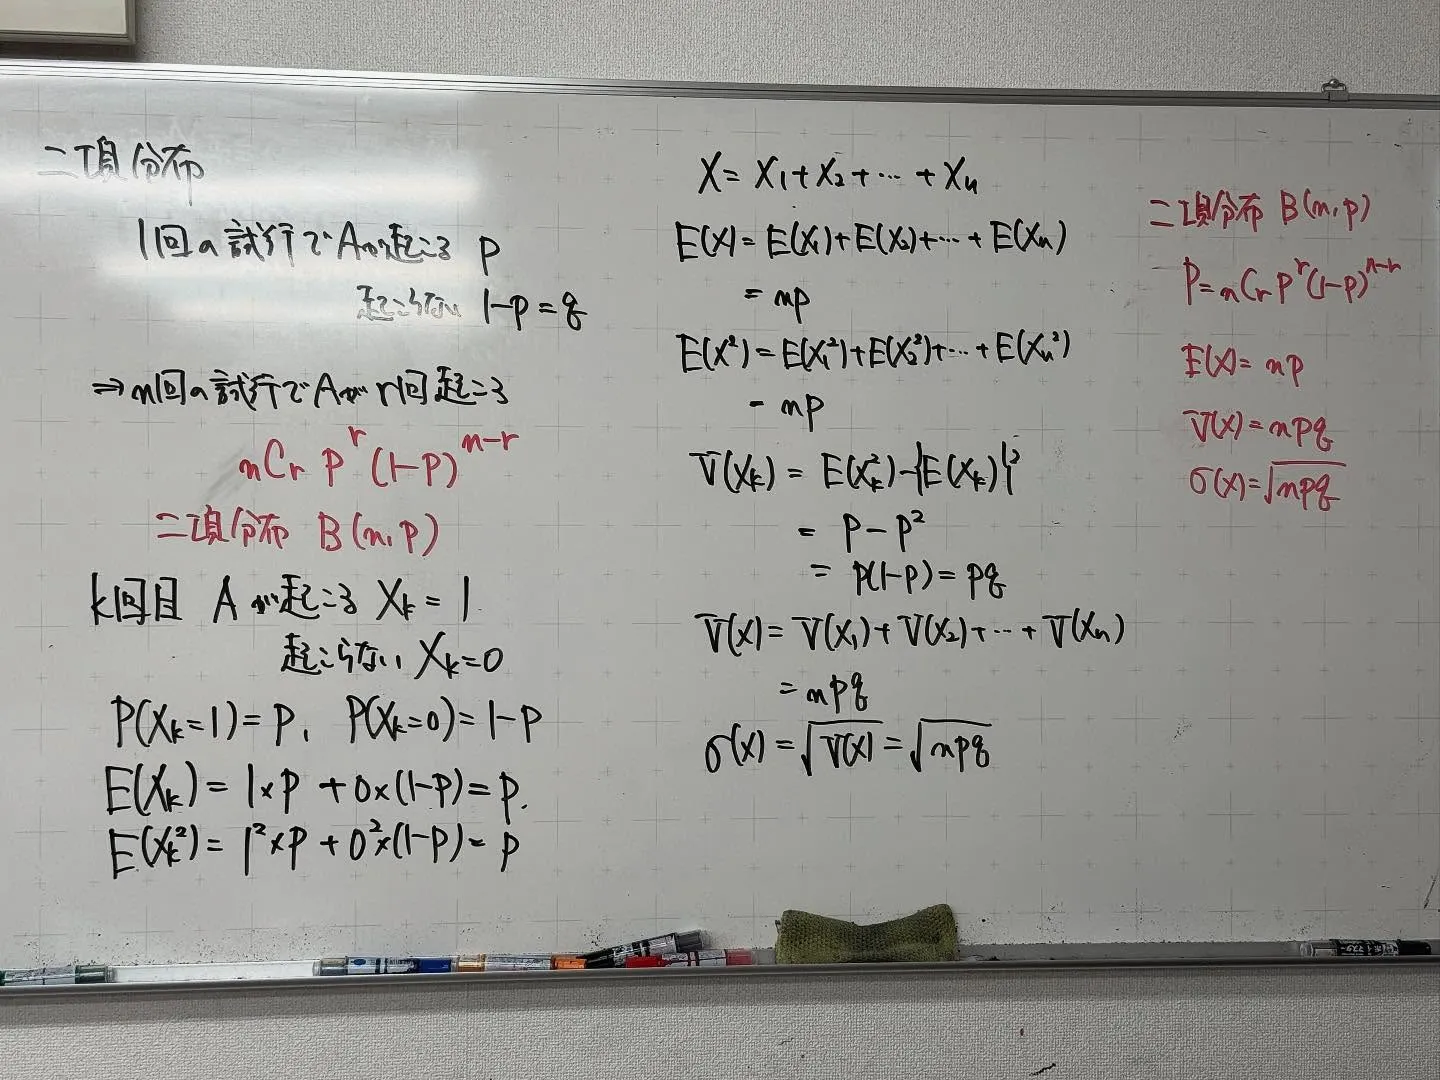 二項分布
1回の試行でAが起こる p
起こらない 1-p=q
⇒n回の試行でAがr回起こる
nCr p^r (1-p)^{n-r}
二項分布 B(n,p)
k回目 Aが起こる X_k=1
起こらない X_k=0
P(X_k=1)=p, P(X_k=0)=1-p
E(X_k)=1×p+0×(1-p)=p.
E(X_k^2)=1^2×p+0^2×(1-p)=p
X=X_1+X_2+…+X_n
E(X)=E(X_1)+E(X_2)+…+E(X_n)
=np
E(X^2)=E(X_1^2)+E(X_2^2)+…+E(X_n^2)
=np
V(X_k)=E(X_k^2)-{E(X_k)}^2
=p-p^2
=p(1-p)=pq
V(X)=V(X_1)+V(X_2)+…+V(X_n)
=npq
σ(X)=√V(X)=√npq
二項分布 B(n,p)
P=nCr p^r (1-p)^{n-r}
E(X)=np
V(X)=npq
σ(X)=√npq